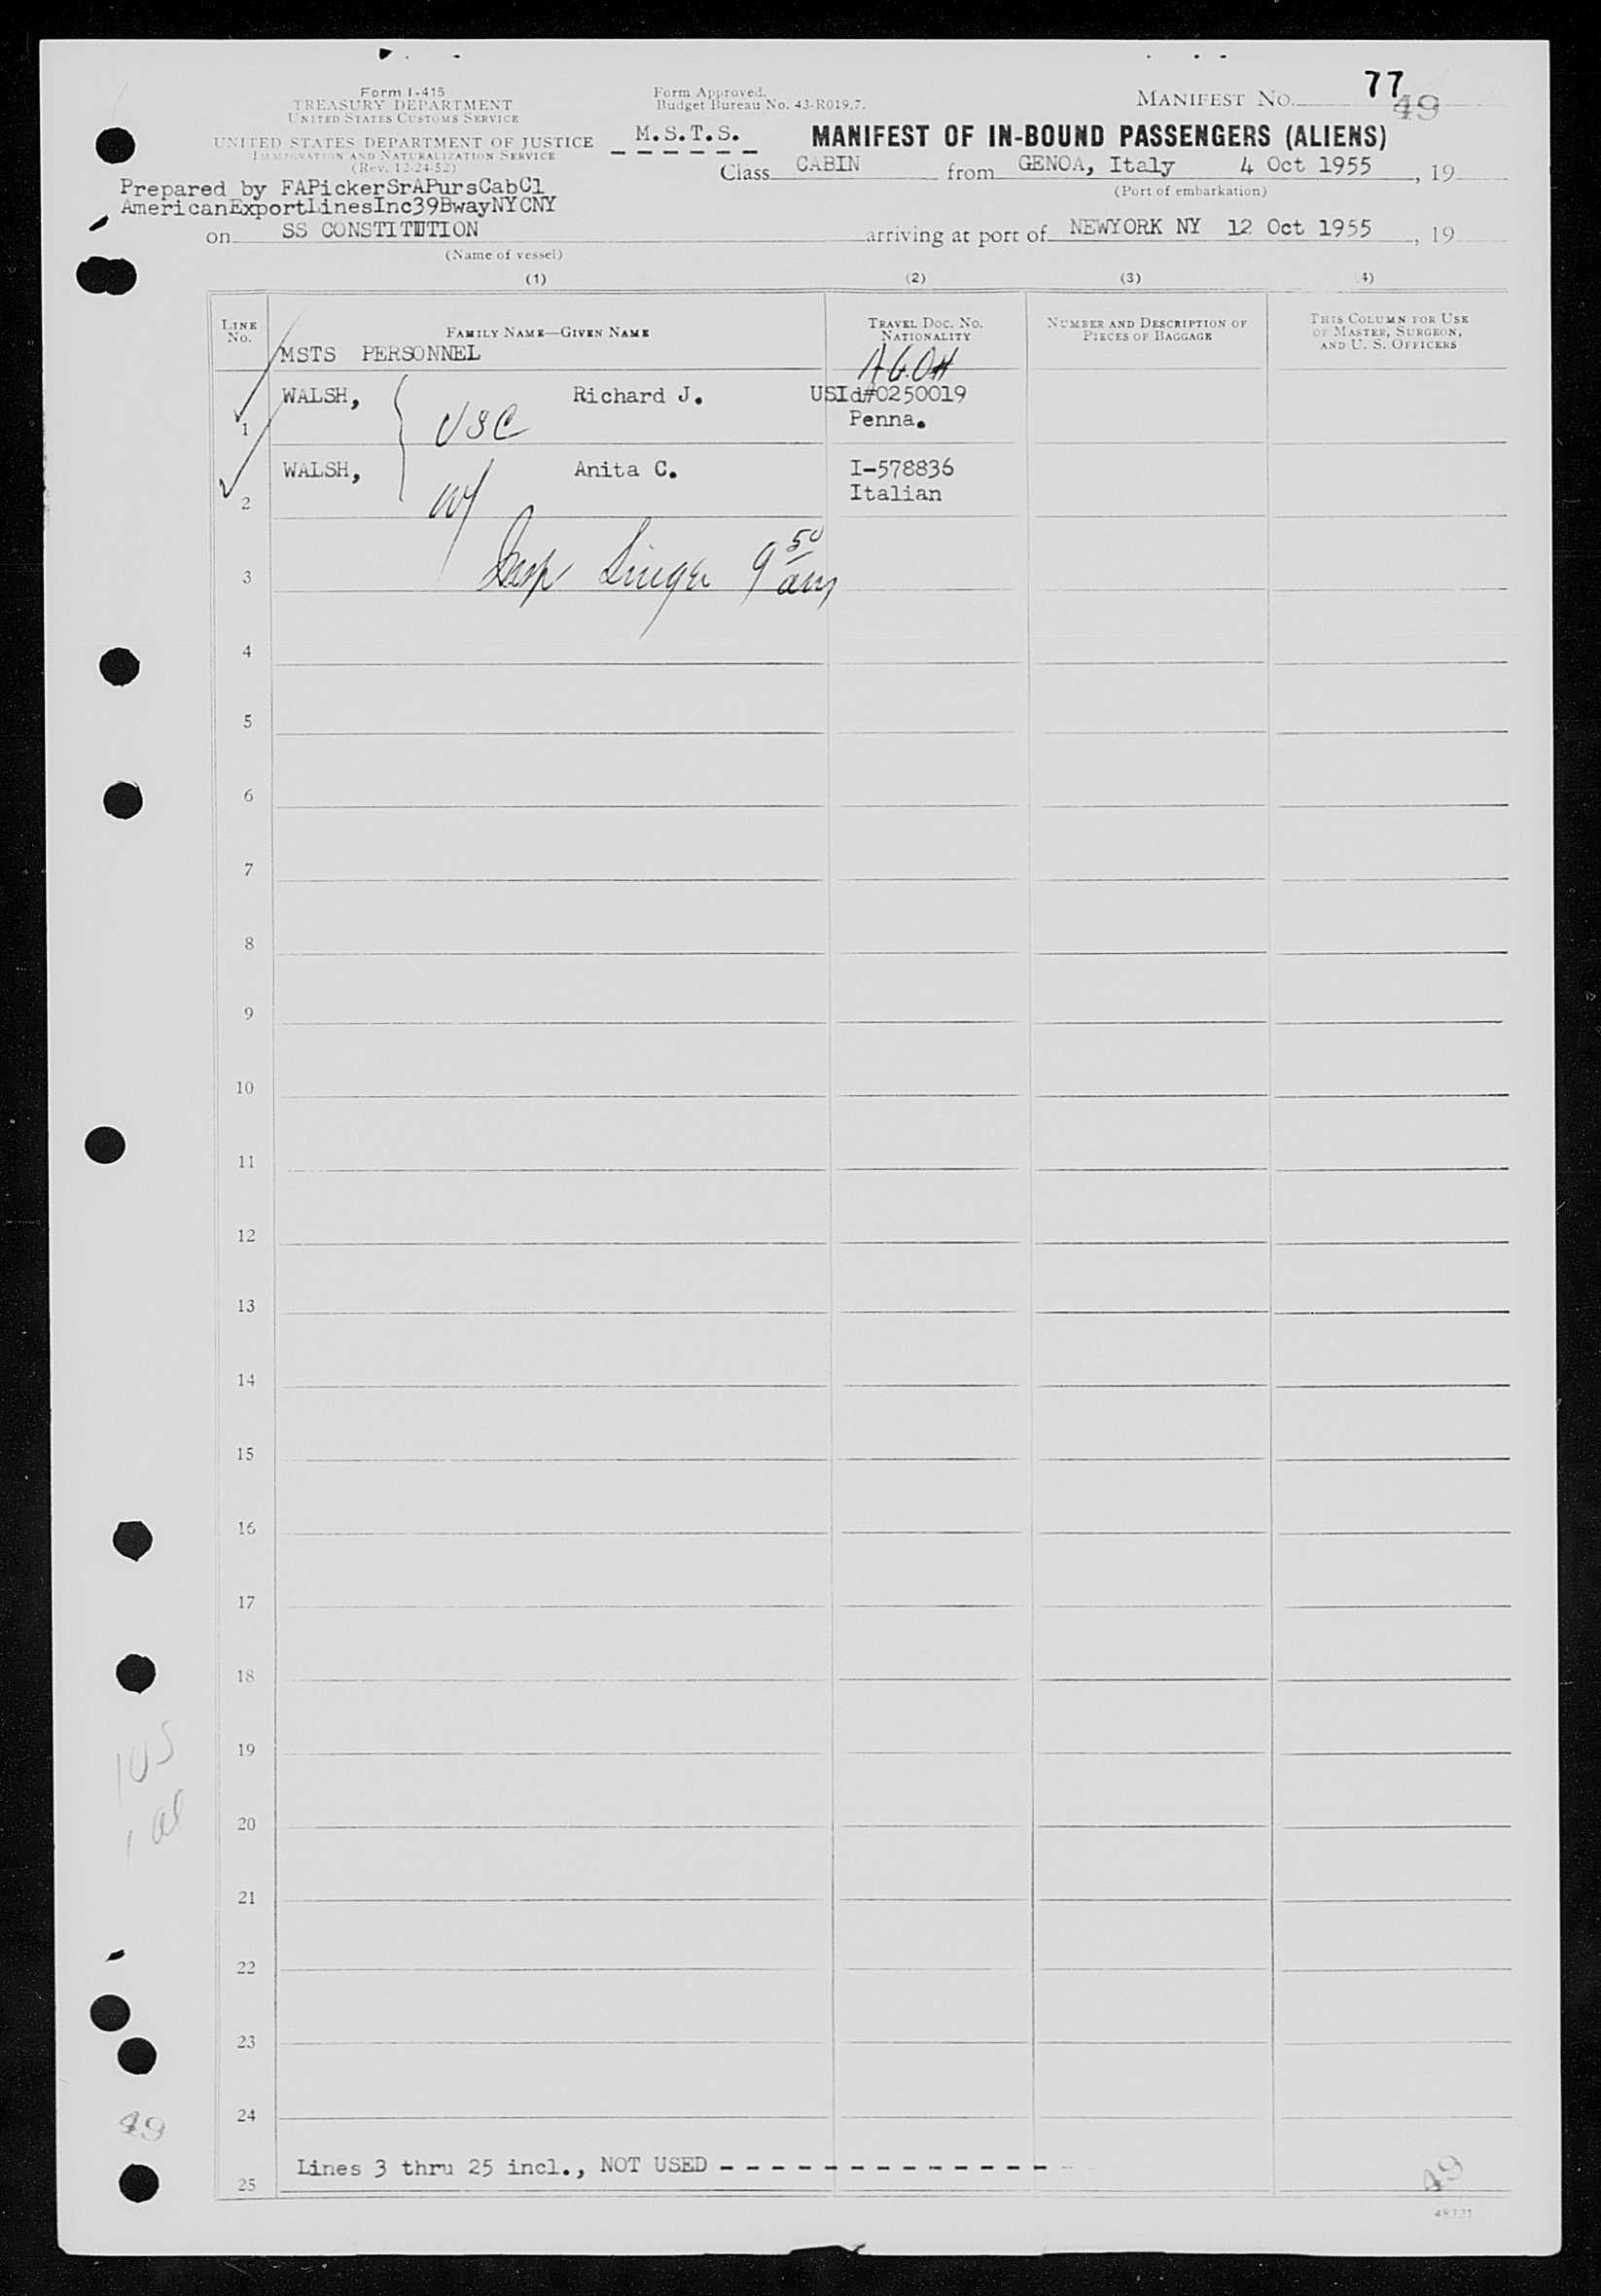 77
Form I-415
TREASURY DEPARTMENT
UNITED STATES CUSTOMS SERVICE
UNITED STATES DEPARTMENT OF JUSTICE
IMMIGRATION AND NATURALIZATION SERVICE
(Rev. 12-24-52)
Form Approved.
Budget Bureau No. 43-R019.7.
MANIFEST NO. 49
M.S.T.S.
MANIFEST OF IN-BOUND PASSENGERS (ALIENS)
Class CABIN from GENOA, Italy 4 Oct 1955, 19
(Port of embarkation)
Prepared by FAPickerSrAPursCabCl
AmericanExportLinesInc39BwayNYCNY
on SS CONSTITUTION arriving at port of NEWYORK NY 12 Oct 1955, 19
(Name of vessel)
(1) (2) (3) 4)
LINE NO.
FAMILY NAME—GIVEN NAME
TRAVEL DOC. NO.
NATIONALITY
NUMBER AND DESCRIPTION OF
PIECES OF BAGGAGE
THIS COLUMN FOR USE
OF MASTER, SURGEON,
AND U. S. OFFICERS
MSTS PERSONNEL
AGO#
WALSH, Richard J. USId#0250019
1 USC Penna.
WALSH, Anita C. I-578836
2 W/ Italian
Insp Singer 9 50 am
3
4
5
6
7
8
9
10
11
12
13
14
15
16
17
18
1 US
19
1 al
20
21
22
23
49
24
Lines 3 thru 25 incl., NOT USED - - - - - - - - - - - - - -
25
49